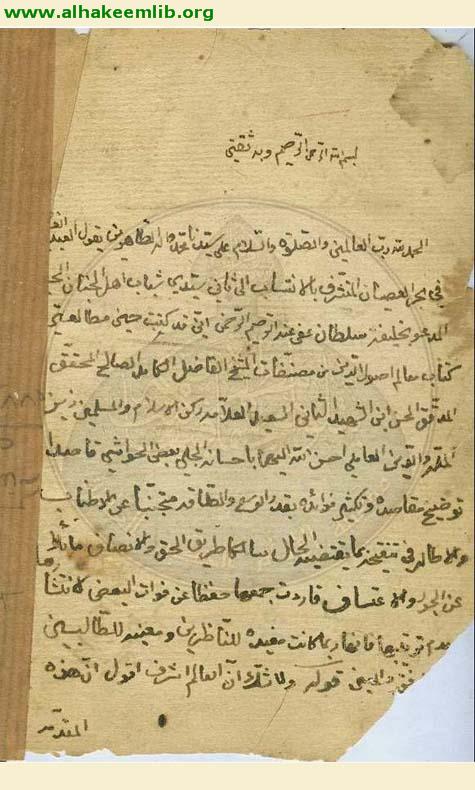 www.alhakeemlib.org
بسم الله الرحمن الرحيم وبه ثقتي
الحمد لله رب العالمين والصلوة والسلام على سيدنا محمد واله الطاهرين يقول العبد
في بحر العصيان المتشرف بالانتساب الى ثاني سيدي شباب اهل الجنان
المدعو بخليفة سلطان عفى عنه الرحيم الرحمن اني قد كتبت حين مطالعتي
كتاب معالم اصول الدين من مصنفات الشيخ الفاضل الكامل الصالح المحقق
المدقق الحسن ابن الشهيد الثاني السعيد العلامة ركن الاسلام والمسلمين زين
الملة والدين العاملي احسن الله اليهما باحسانه الجلي بعض الحواشي قاصدا
توضيح مقاصده وتكثير فوائده بقدر الوسع والطاقة مجتنبا عن الاطناب
والاطالة في تنقيحه بما يقتضيه الحال سالكا طريق الحق والانصاف مائلا
عن الجور والاعتساف فاردت جمعها حفظا عن فوات البعض لانتشارها
ترتيبها فانها ربما كانت مفيدة للناظرين ومعينة للطالبين
والمعين قوله ولا شك ان العلم اشرف اقول ان هذه
المقدمة